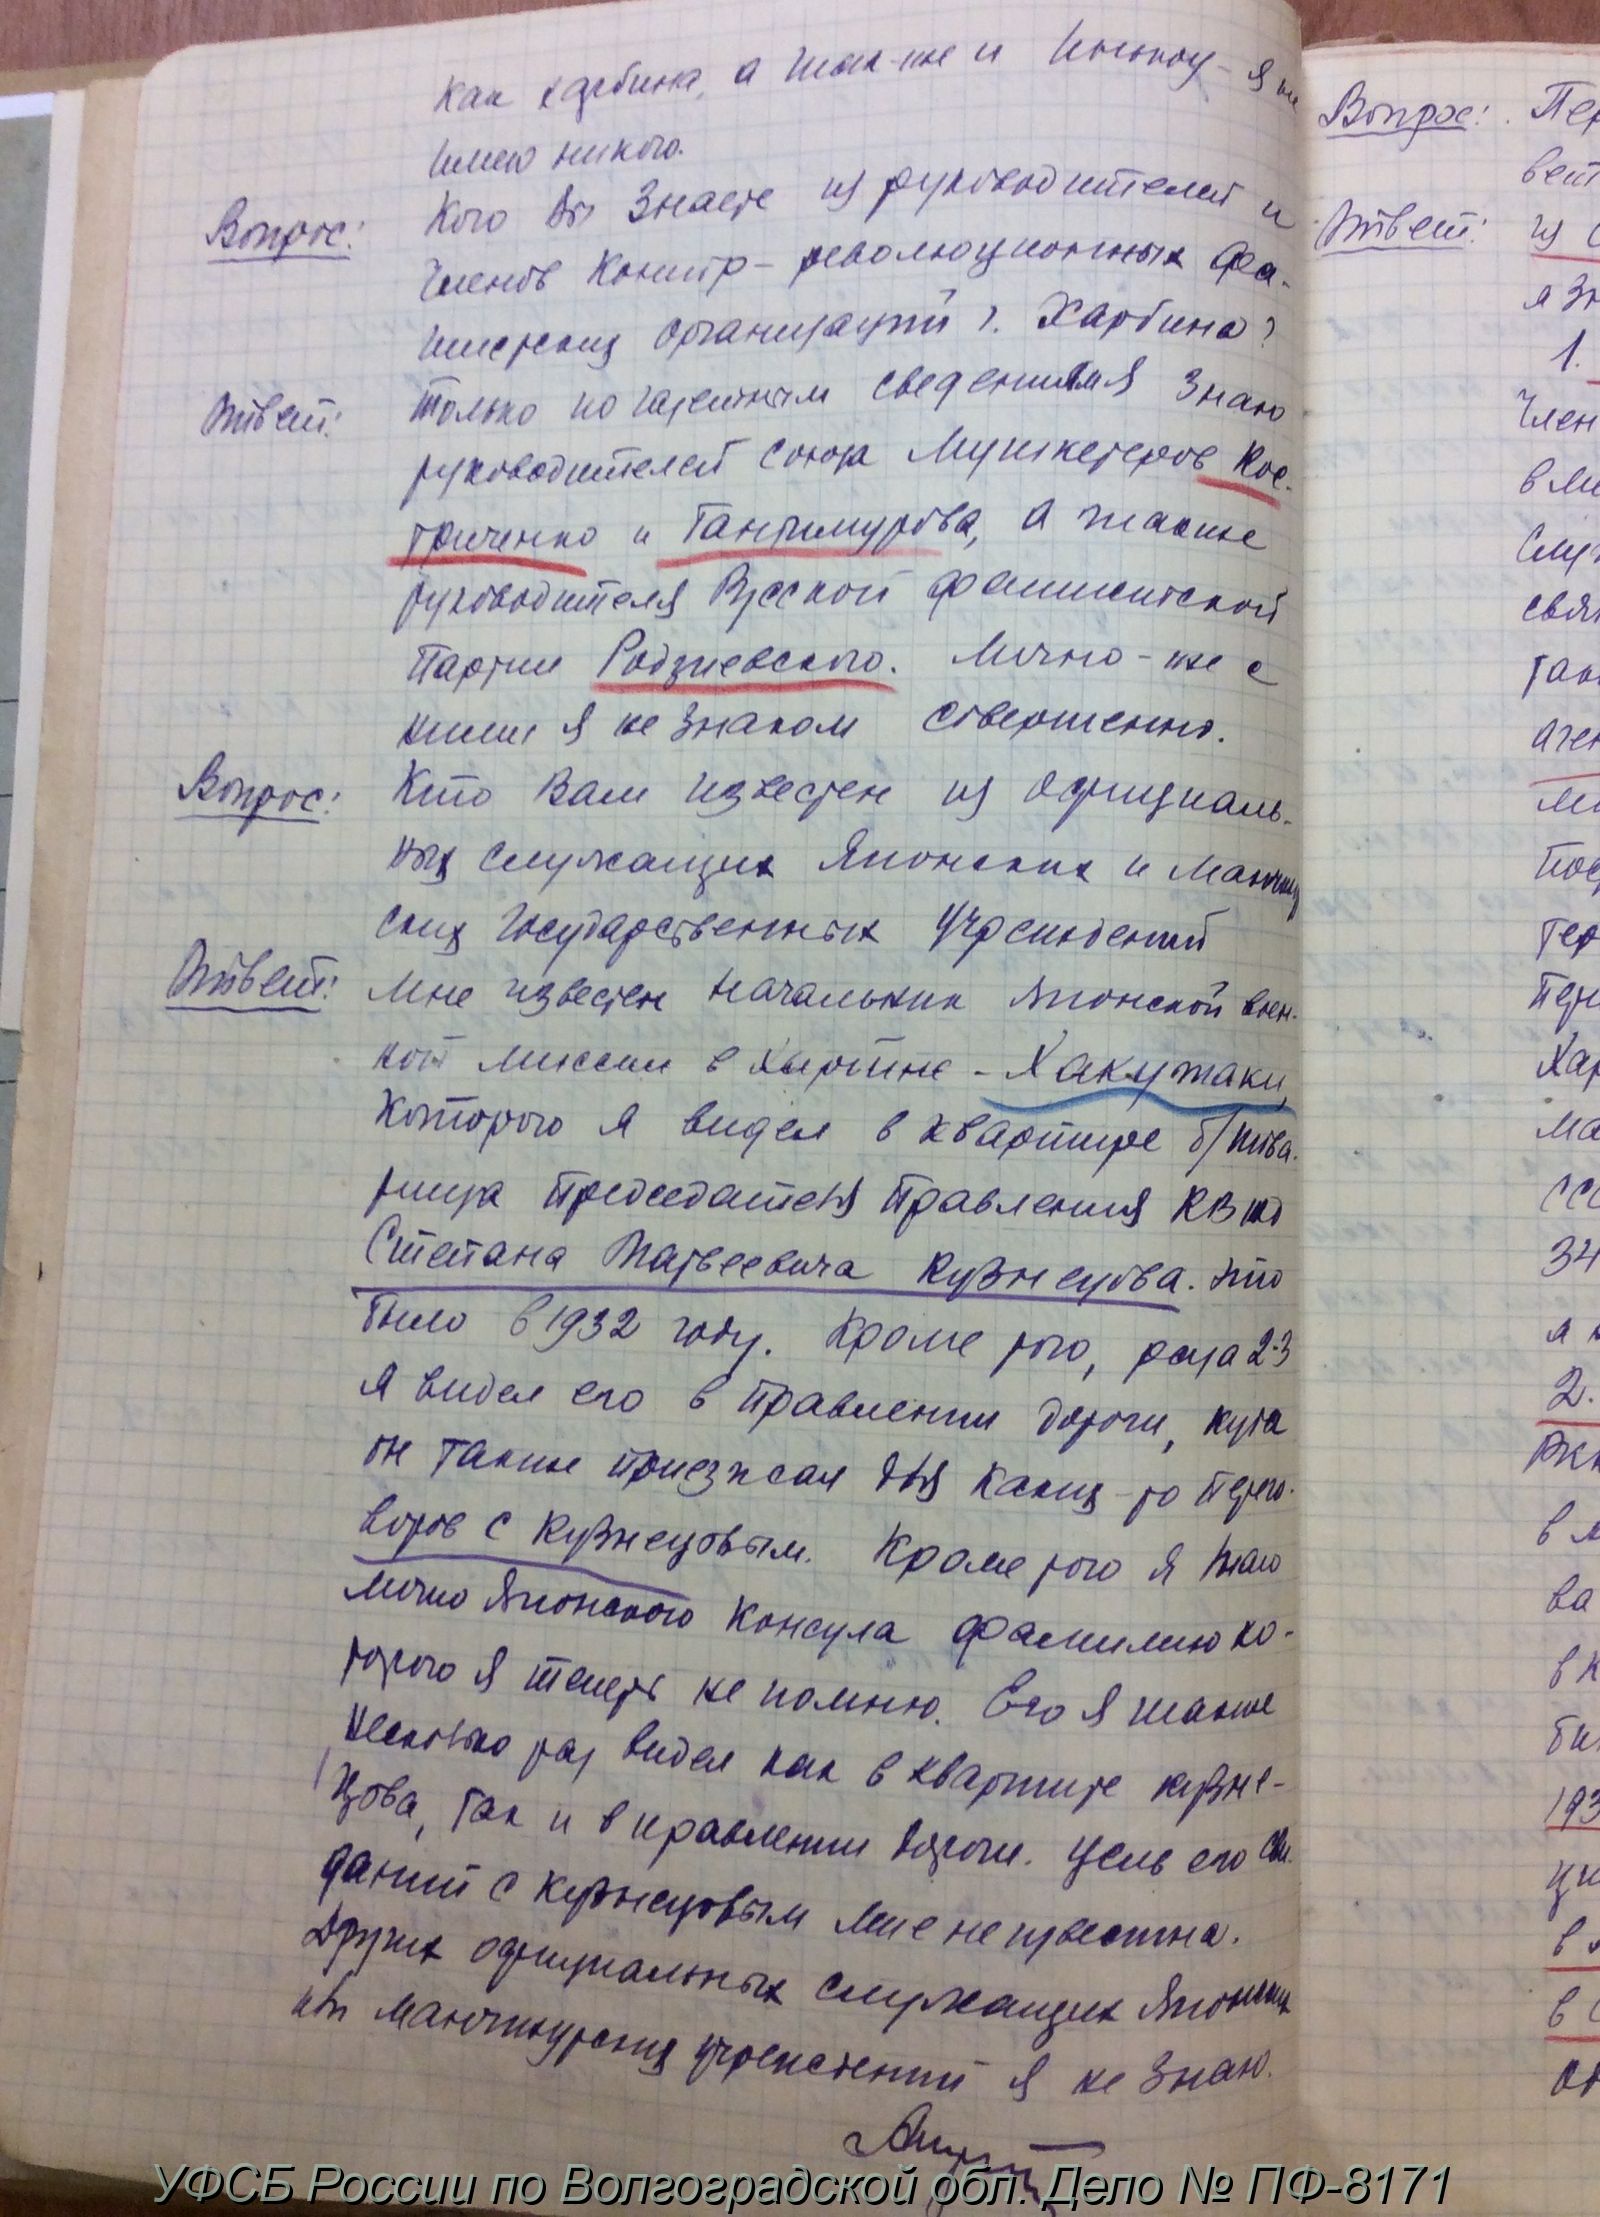 как Харбина, а так-же и Японцу - я не
имею никого.
Вопрос: Кого вы знаете из руководителей и
членов контр-революционных фа-
шистских организаций г. Харбина?
Ответ: только по газетным сведениям я знаю
руководителей союза Мушкетеров Кос-
триченко и Гантимурова, а также
руководителя Русской фашистской
партии Родзиевского. Лично-же с
ними я не знаком совершенно.
Вопрос: Кто Вам известен из официаль-
ных служащих Японских и Манчжур
ских государственных учреждений
Ответ: Мне известен начальник Японской воен-
ной миссии в Харбине - Хакутаки,
которого я видел в квартире б/това-
рища председателя Правления КВжд
Степана Матвеевича Кузнецова. это
было в 1932 году. Кроме того, раза 2-3
я видел его в Правлении дороги, куда
он также приезжал для каких-то перего-
воров с Кузнецовым. Кроме того я знаю
лично Японского консула фамилию ко-
торого я теперь не помню. Его я также
несколько раз видел как в квартире Кузне-
цова, так и в правлении дороги. Цель его сви-
даний с Кузнецовым мне не известна.
Других официальных служащих Японских
или Манчжурских учреждений я не знаю.
Вопрос: Пер
вет
Ответ: из с
я зн
1.
член
в ми
служ
связ
так
аген
ми
пос
тер
пер
Хар
ма
ссс
34
я
2.
в
ва
в к
би
193
ци
в
в с
от
УФСБ России по Волгоградской обл. Дело № ПФ-8171